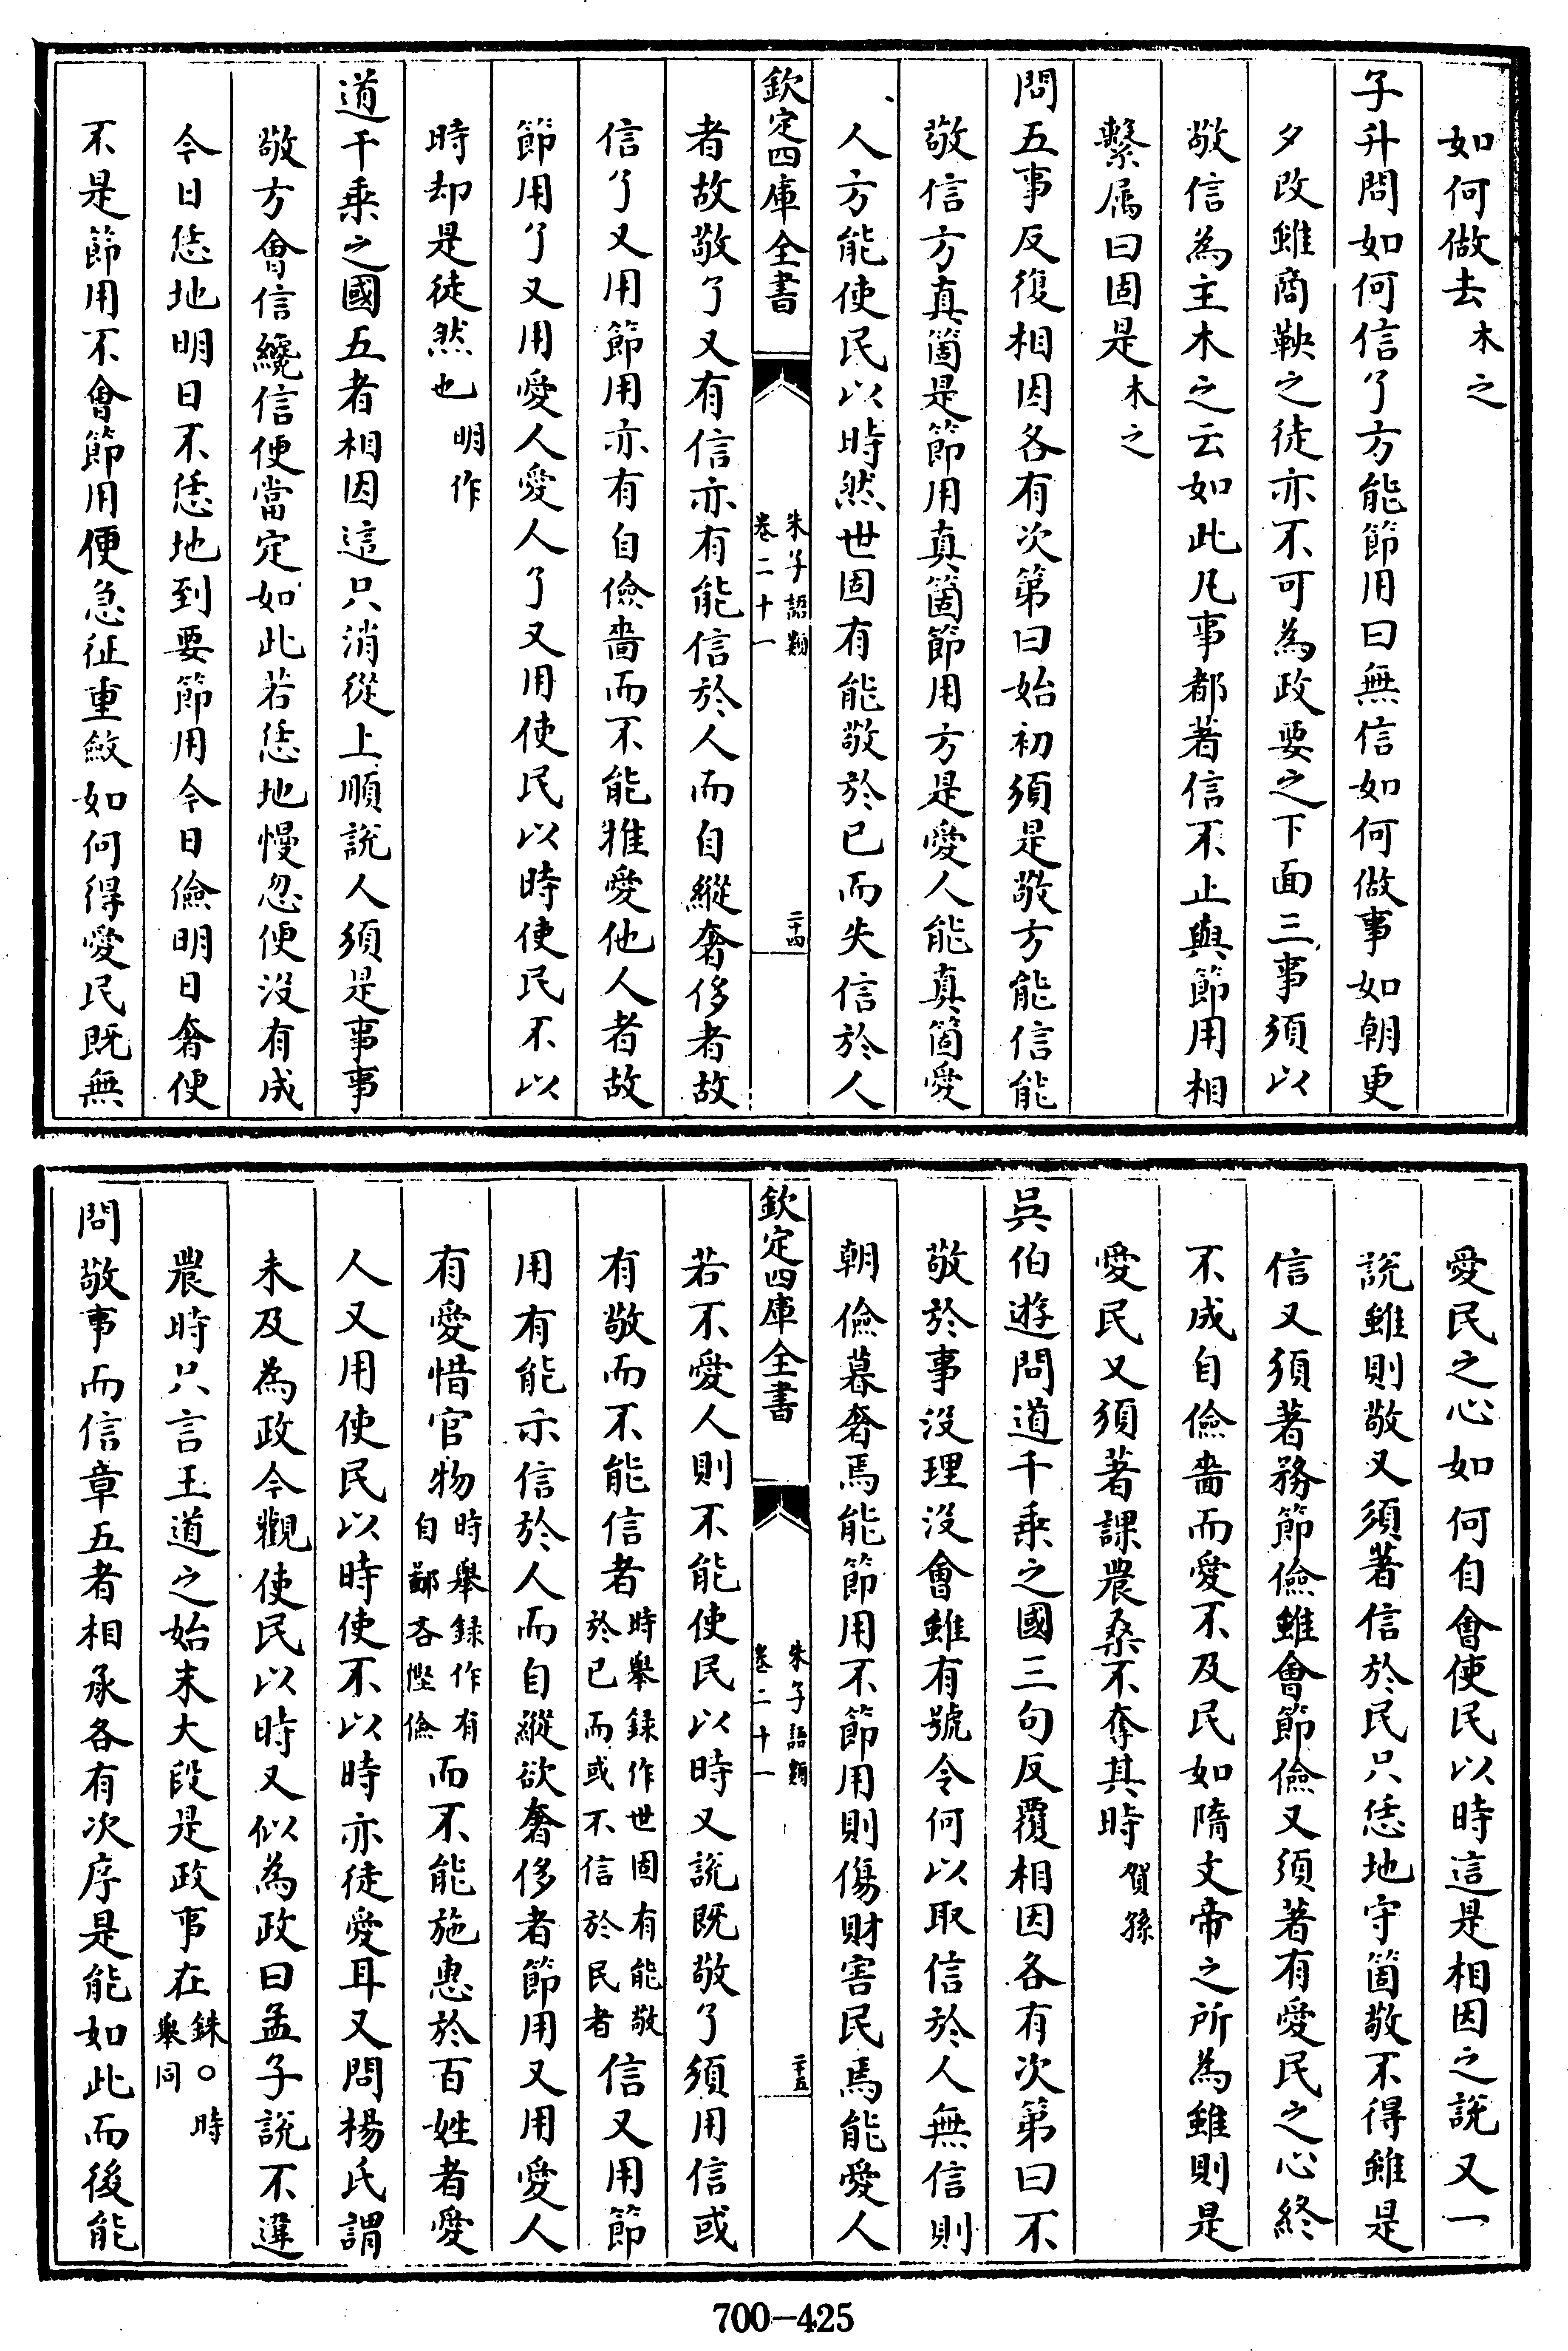 如何做去木之
子升問如何信了方能節用曰無信如何做事如朝更
夕改雖商鞅之徒亦不可為政要之下面三事須以
敬信為主木之云如此凡事都著信不止與節用相
繫属曰固是木之
問五事反復相因各有次第曰始初須是敬方能信能
敬信方真箇是節用真箇節用方是愛人能真箇愛
人方能使民以時然世固有能敬於已而失信於人
欽定四庫全書
朱子語類
卷二十一
二十四
者故敬了又有信亦有能信於人而自縱奢侈者故
信了又用節用亦有自儉嗇而不能推愛他人者故
節用了又用愛人愛人了又用使民以時使民不以
時却是徒然也明作
道千乗之國五者相因這只消從上順說人須是事事
敬方會信纔信便當定如此若恁地慢忽便沒有成
今日恁地明日不恁地到要節用今日儉明日奢便
不是節用不會節用便急征重斂如何得愛民既無
愛民之心如何自會使民以時這是相因之說又一
說雖則敬又須著信於民只恁地守箇敬不得雖是
信又須著務節儉雖會節儉又須著有愛民之心終
不成自儉嗇而愛不及民如隋文帝之所為雖則是
愛民又須著課農桑不奪其時賀孫
吳伯遊問道千乗之國三句反覆相因各有次第曰不
敬於事沒理沒會雖有號令何以取信於人無信則
朝儉暮奢焉能節用不節用則傷財害民焉能愛人
欽定四庫全書
朱子語類
卷二十一
二十五
若不愛人則不能使民以時又說既敬了須用信或
有敬而不能信者時舉録作世固有能敬於已而或不信於民者信又用節
用有能示信於人而自縱欲奢侈者節用又用愛人
有愛惜官物時舉録作有自鄙吝慳儉而不能施惠於百姓者愛
人又用使民以時使不以時亦徒愛耳又問楊氏謂
未及為政今觀使民以時又似為政曰孟子說不違
農時只言王道之始末大段是政事在銖○時舉同
問敬事而信章五者相承各有次序是能如此而後能
700-425